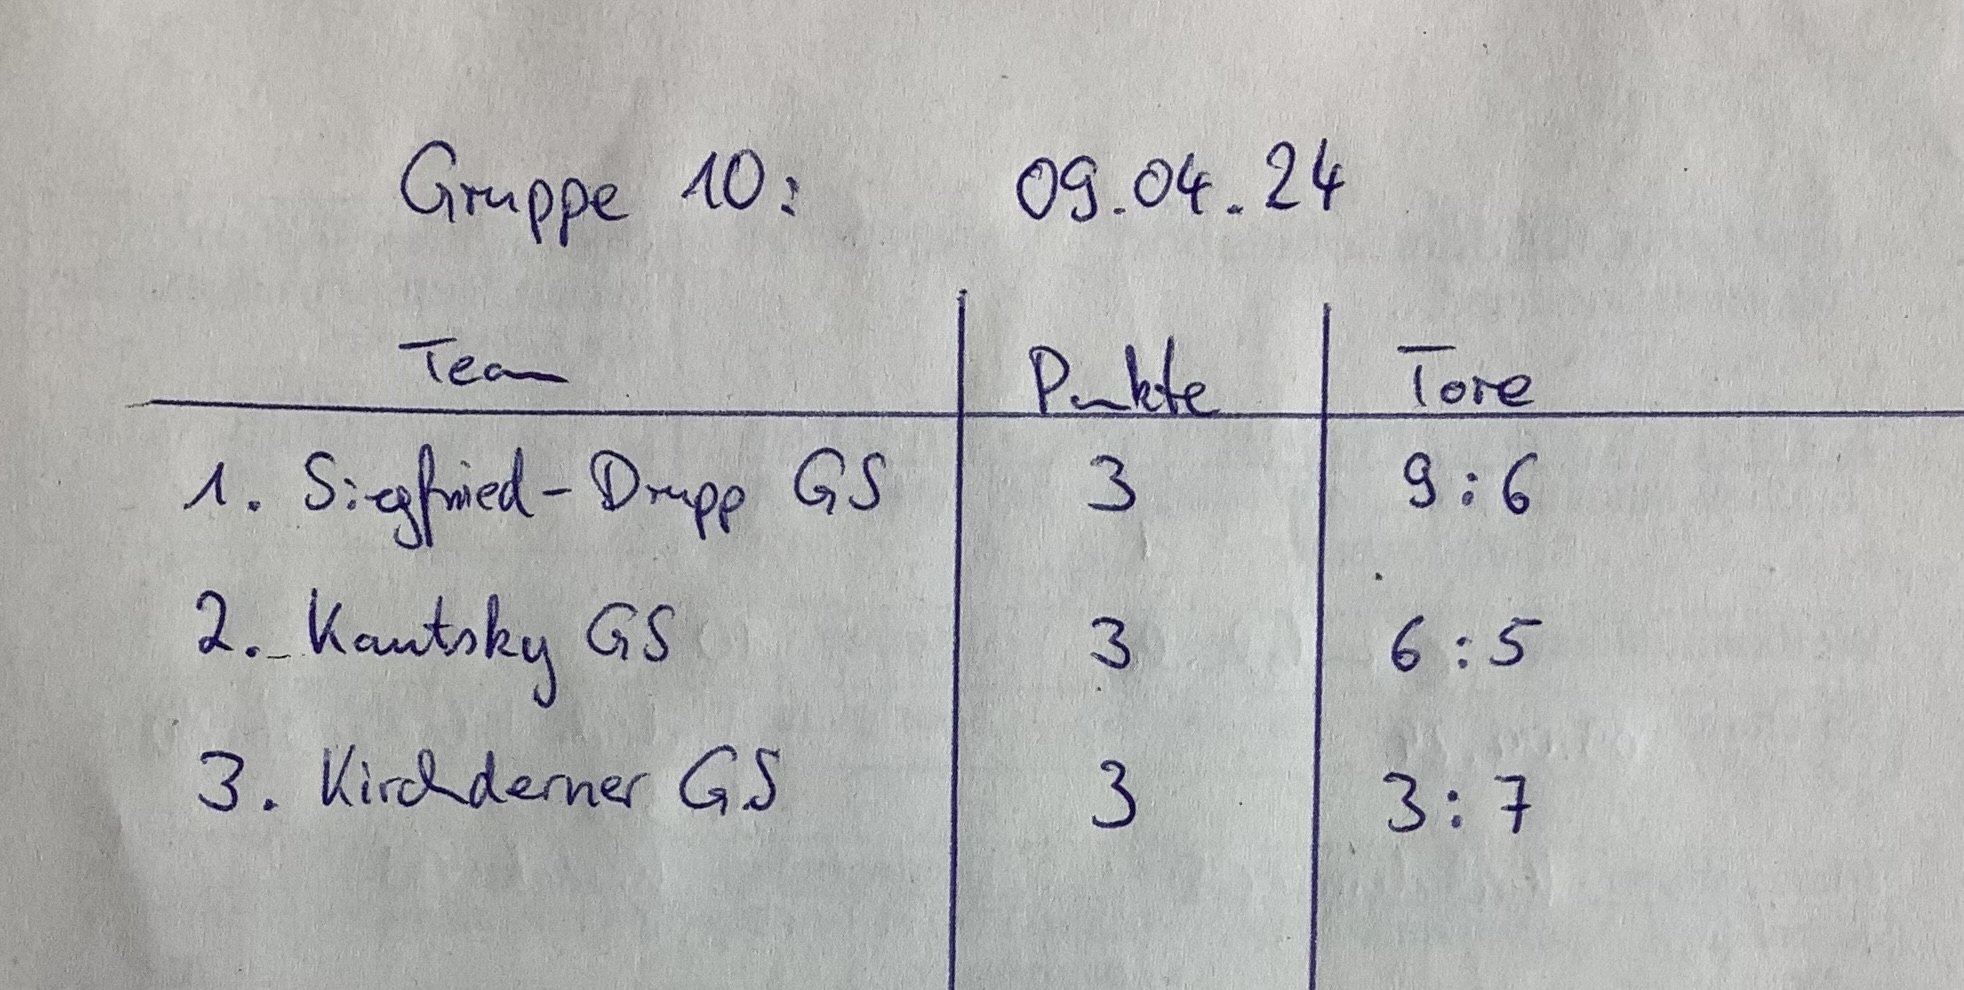 Gruppe 10: 09.04.24
Team Punkte Tore
1. Siegfried-Drupp GS 3 9:6
2. Kautsky GS 3 6:5
3. Kirchderner GS 3 3:7